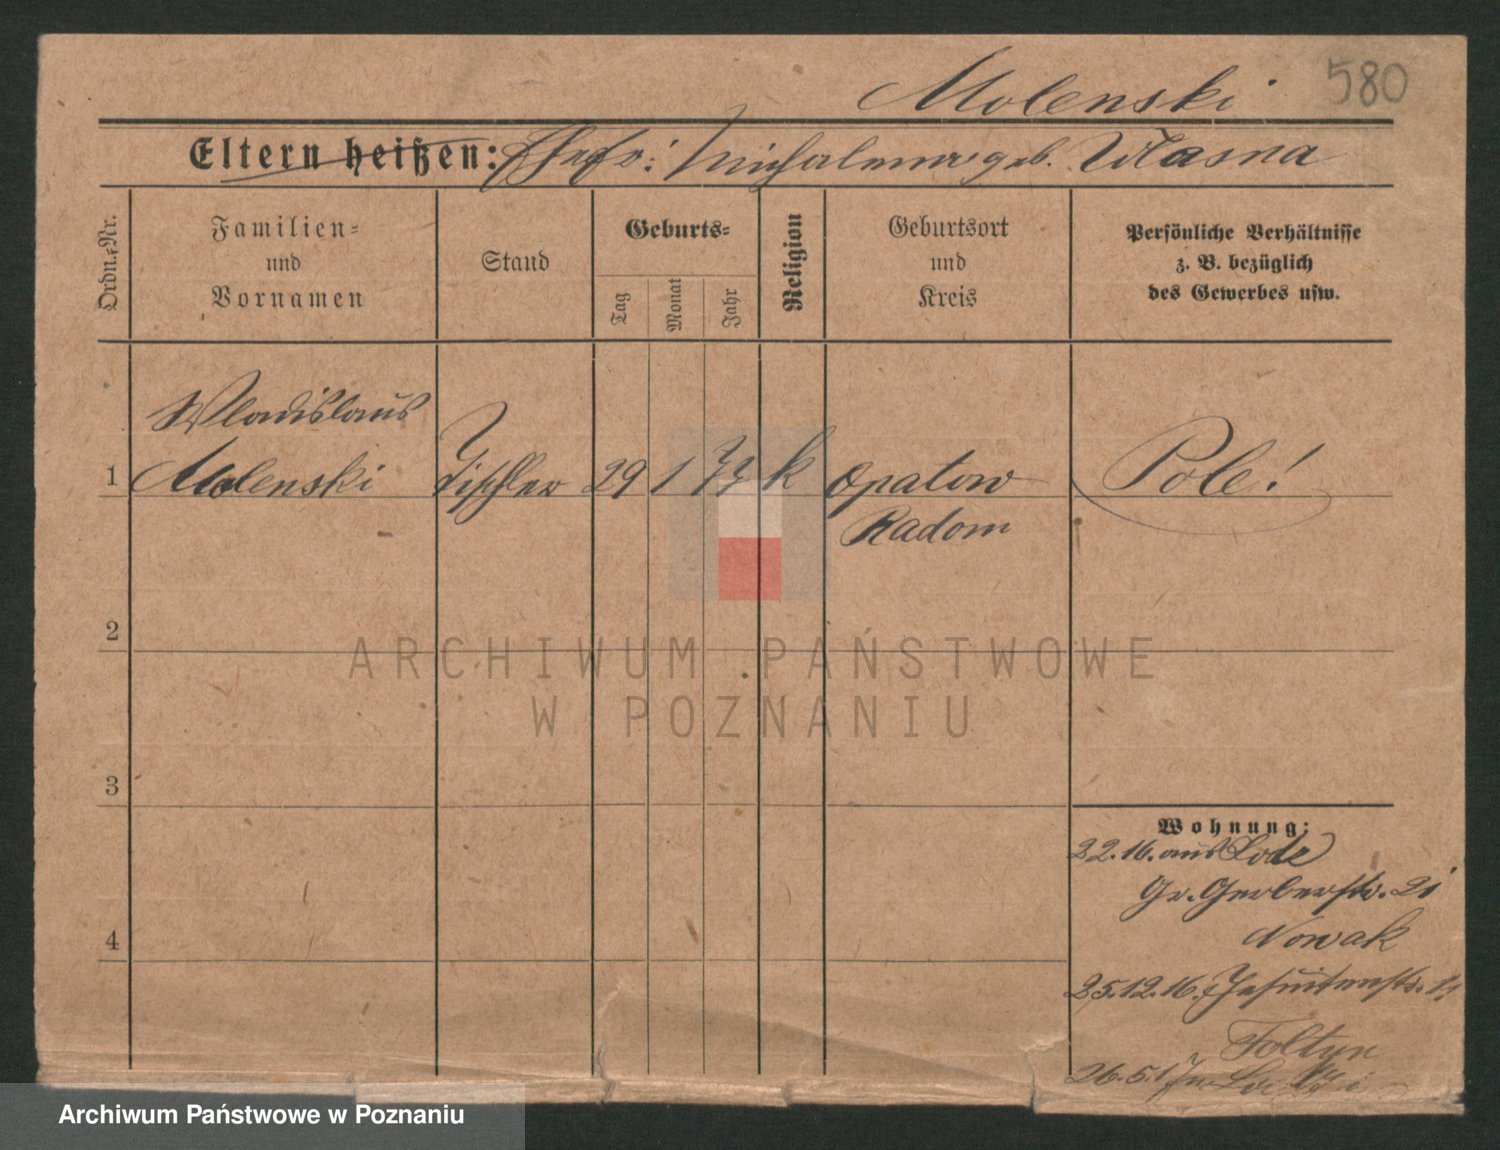 Molenski 580
Eltern heißen: Ehefr: Michalena geb. Własna
Ordn.-Nr.
Familien-
und
Vornamen
Stand
Geburts-
Tag
Monat
Jahr
Religion
Geburtsort
und
Kreis
Persönliche Verhältnisse
z. B. bezüglich
des Gewerbes usw.
Wladislaus
1 Molenski Tischler 29 1 77 k Opatow Pole!
Radom
2
3
4
Wohnung:
22.16. aus Lodz
Gr. Gerberstr. 21
Nowak
25.12.16. Jesuitenstr. 11
Foltyn
26.5.17
ARCHIWUM PAŃSTWOWE
W POZNANIU
Archiwum Państwowe w Poznaniu